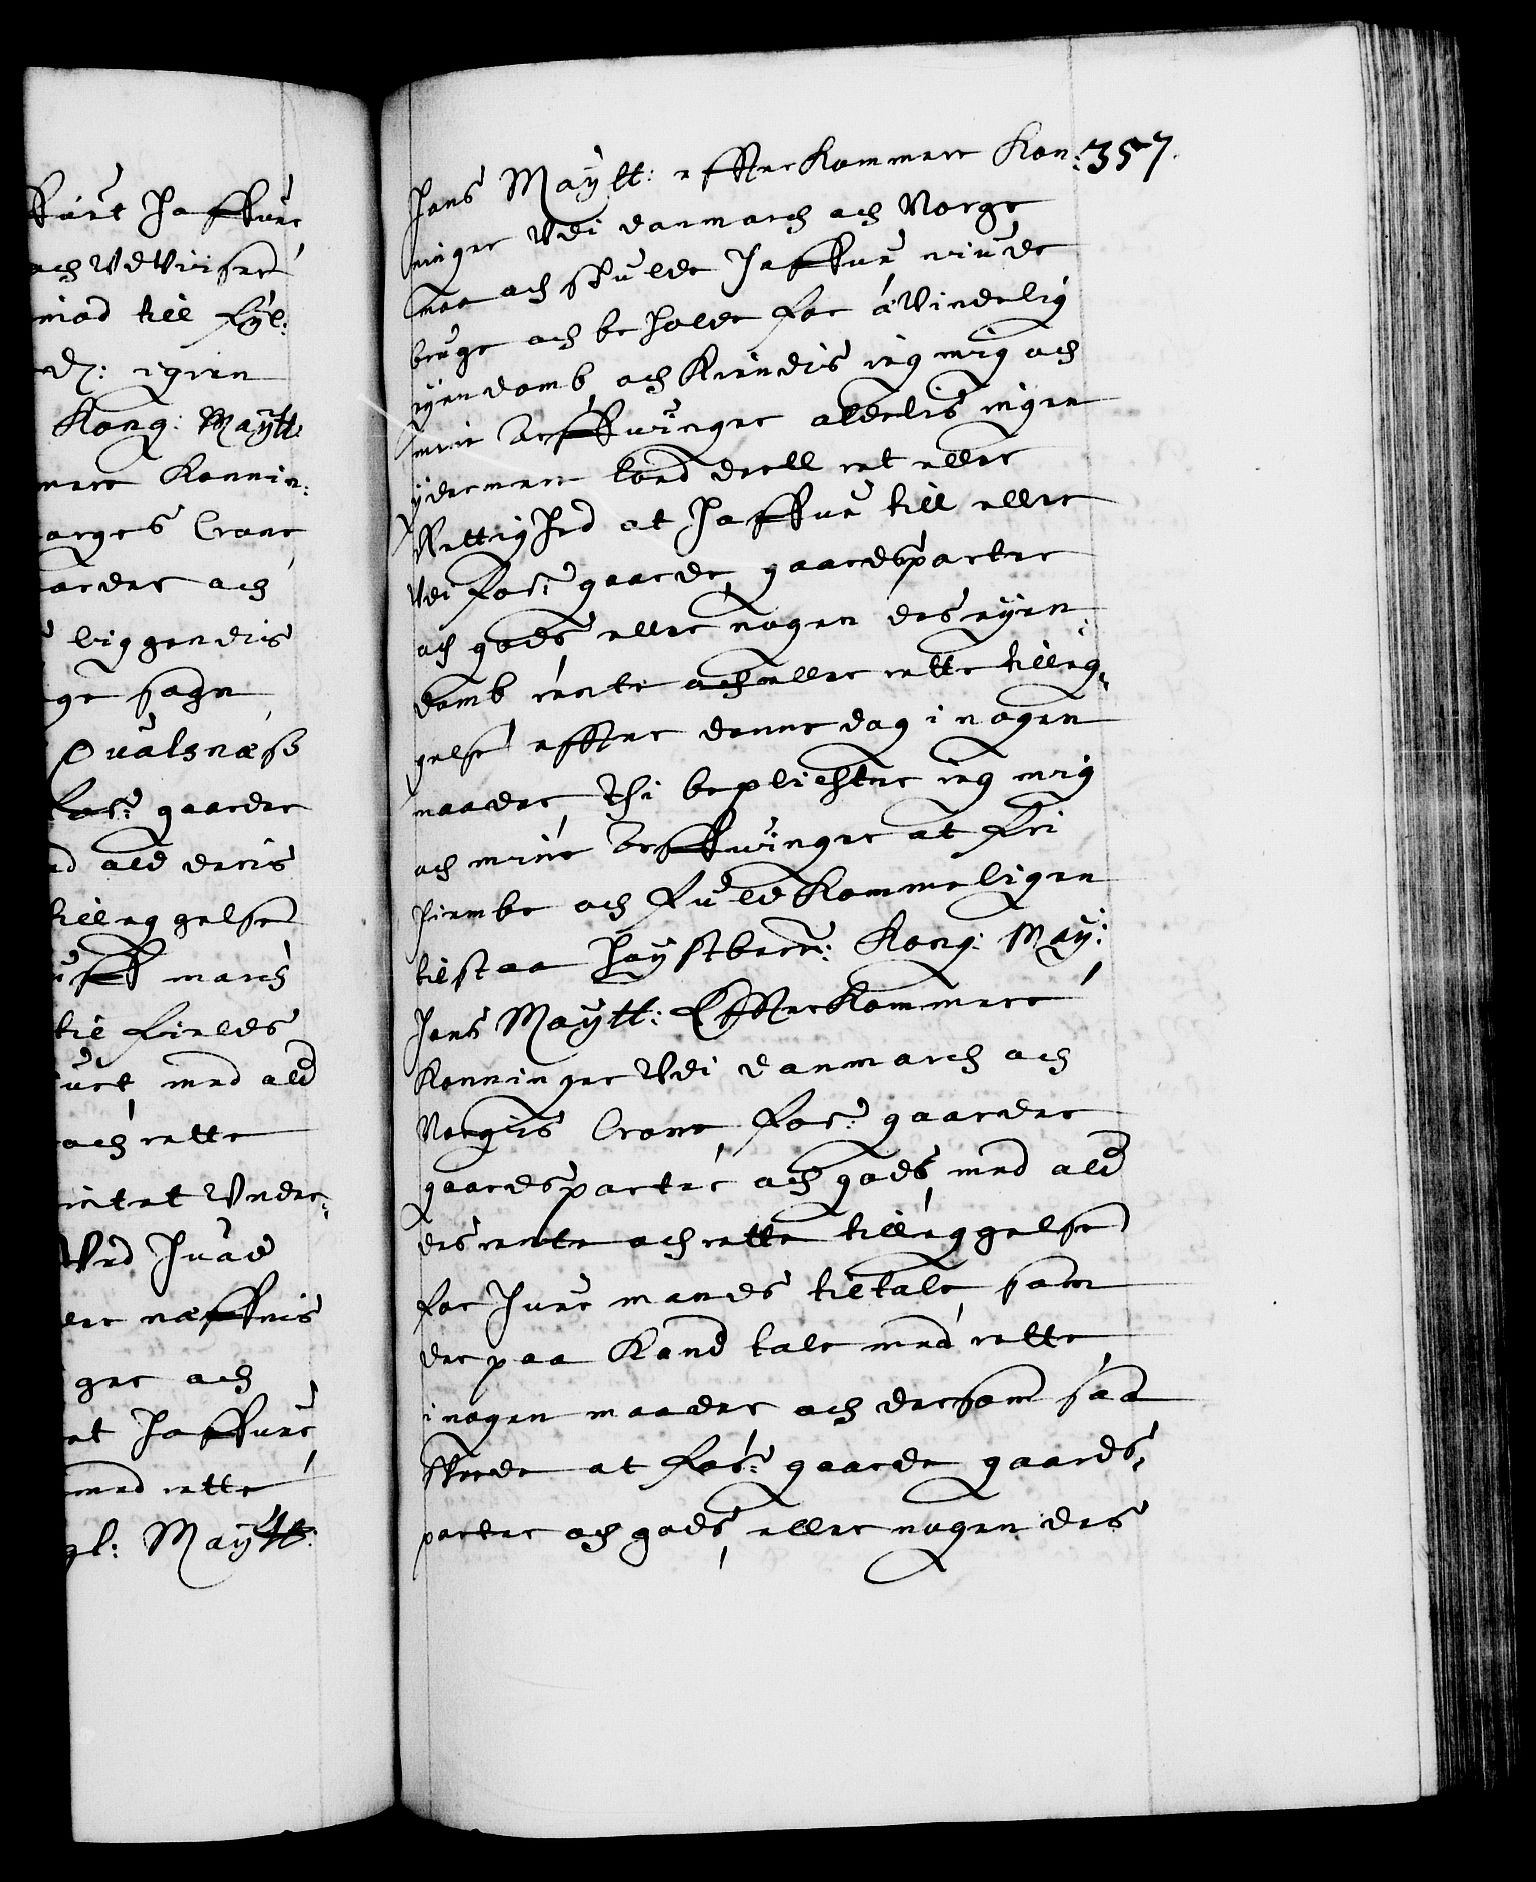 ffuit Haffuer
och Vdvüser
mod till fyl:
d: igien
Kong: Maÿtt:
mere Konnin:
orges Crone
aarder och
liggendis
ge sogn
Qualsnæss
for:ne gaarder
d ald deris
tilleggelse
uff march
til fields
uet, med ald
och rette
intet Vnder:
Ved Huad
der næffnis
ger och
et Haffuer
med rette
gl: Maÿtt:
357.
Hans Maÿtt: effterkommere Kon:
ninger Vdi danmarch och Norge
maa och skulle Haffue niude
bruge och beholde for ævindelig
eyendomb, och Kiendis ieg mig och
mine Arffuinger aldelis ingen
ÿdermere lood deell ret eller
Rettighed at Haffue till eller
Vdi for:ne gaarde, gaardsparter
och gods eller nogen des eyen:
domb rente och eller rette tilleg,
gelse effter denne dag i nogen
maader, Thi beplichter ieg mig
och mine Arffuinger at fri
Hiemble och fuldkommeligen
tilstaa Høystber:te Kong: May:
Hans Maÿtt: Effterkommere
Konninger Vdi danmarch och
Norgis Crone, for:ne gaarder
gaardsparter och gods, med ald
des rente och rette tilleggelse
for Huer mands tiltale, som
der paa Kand tale med rette
i nogen maader och dersom saa
skeede at for:ne gaarde gaards,
parter och gods, eller nogen des